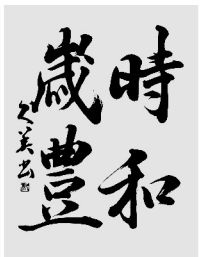 時和
歳豊
久美書